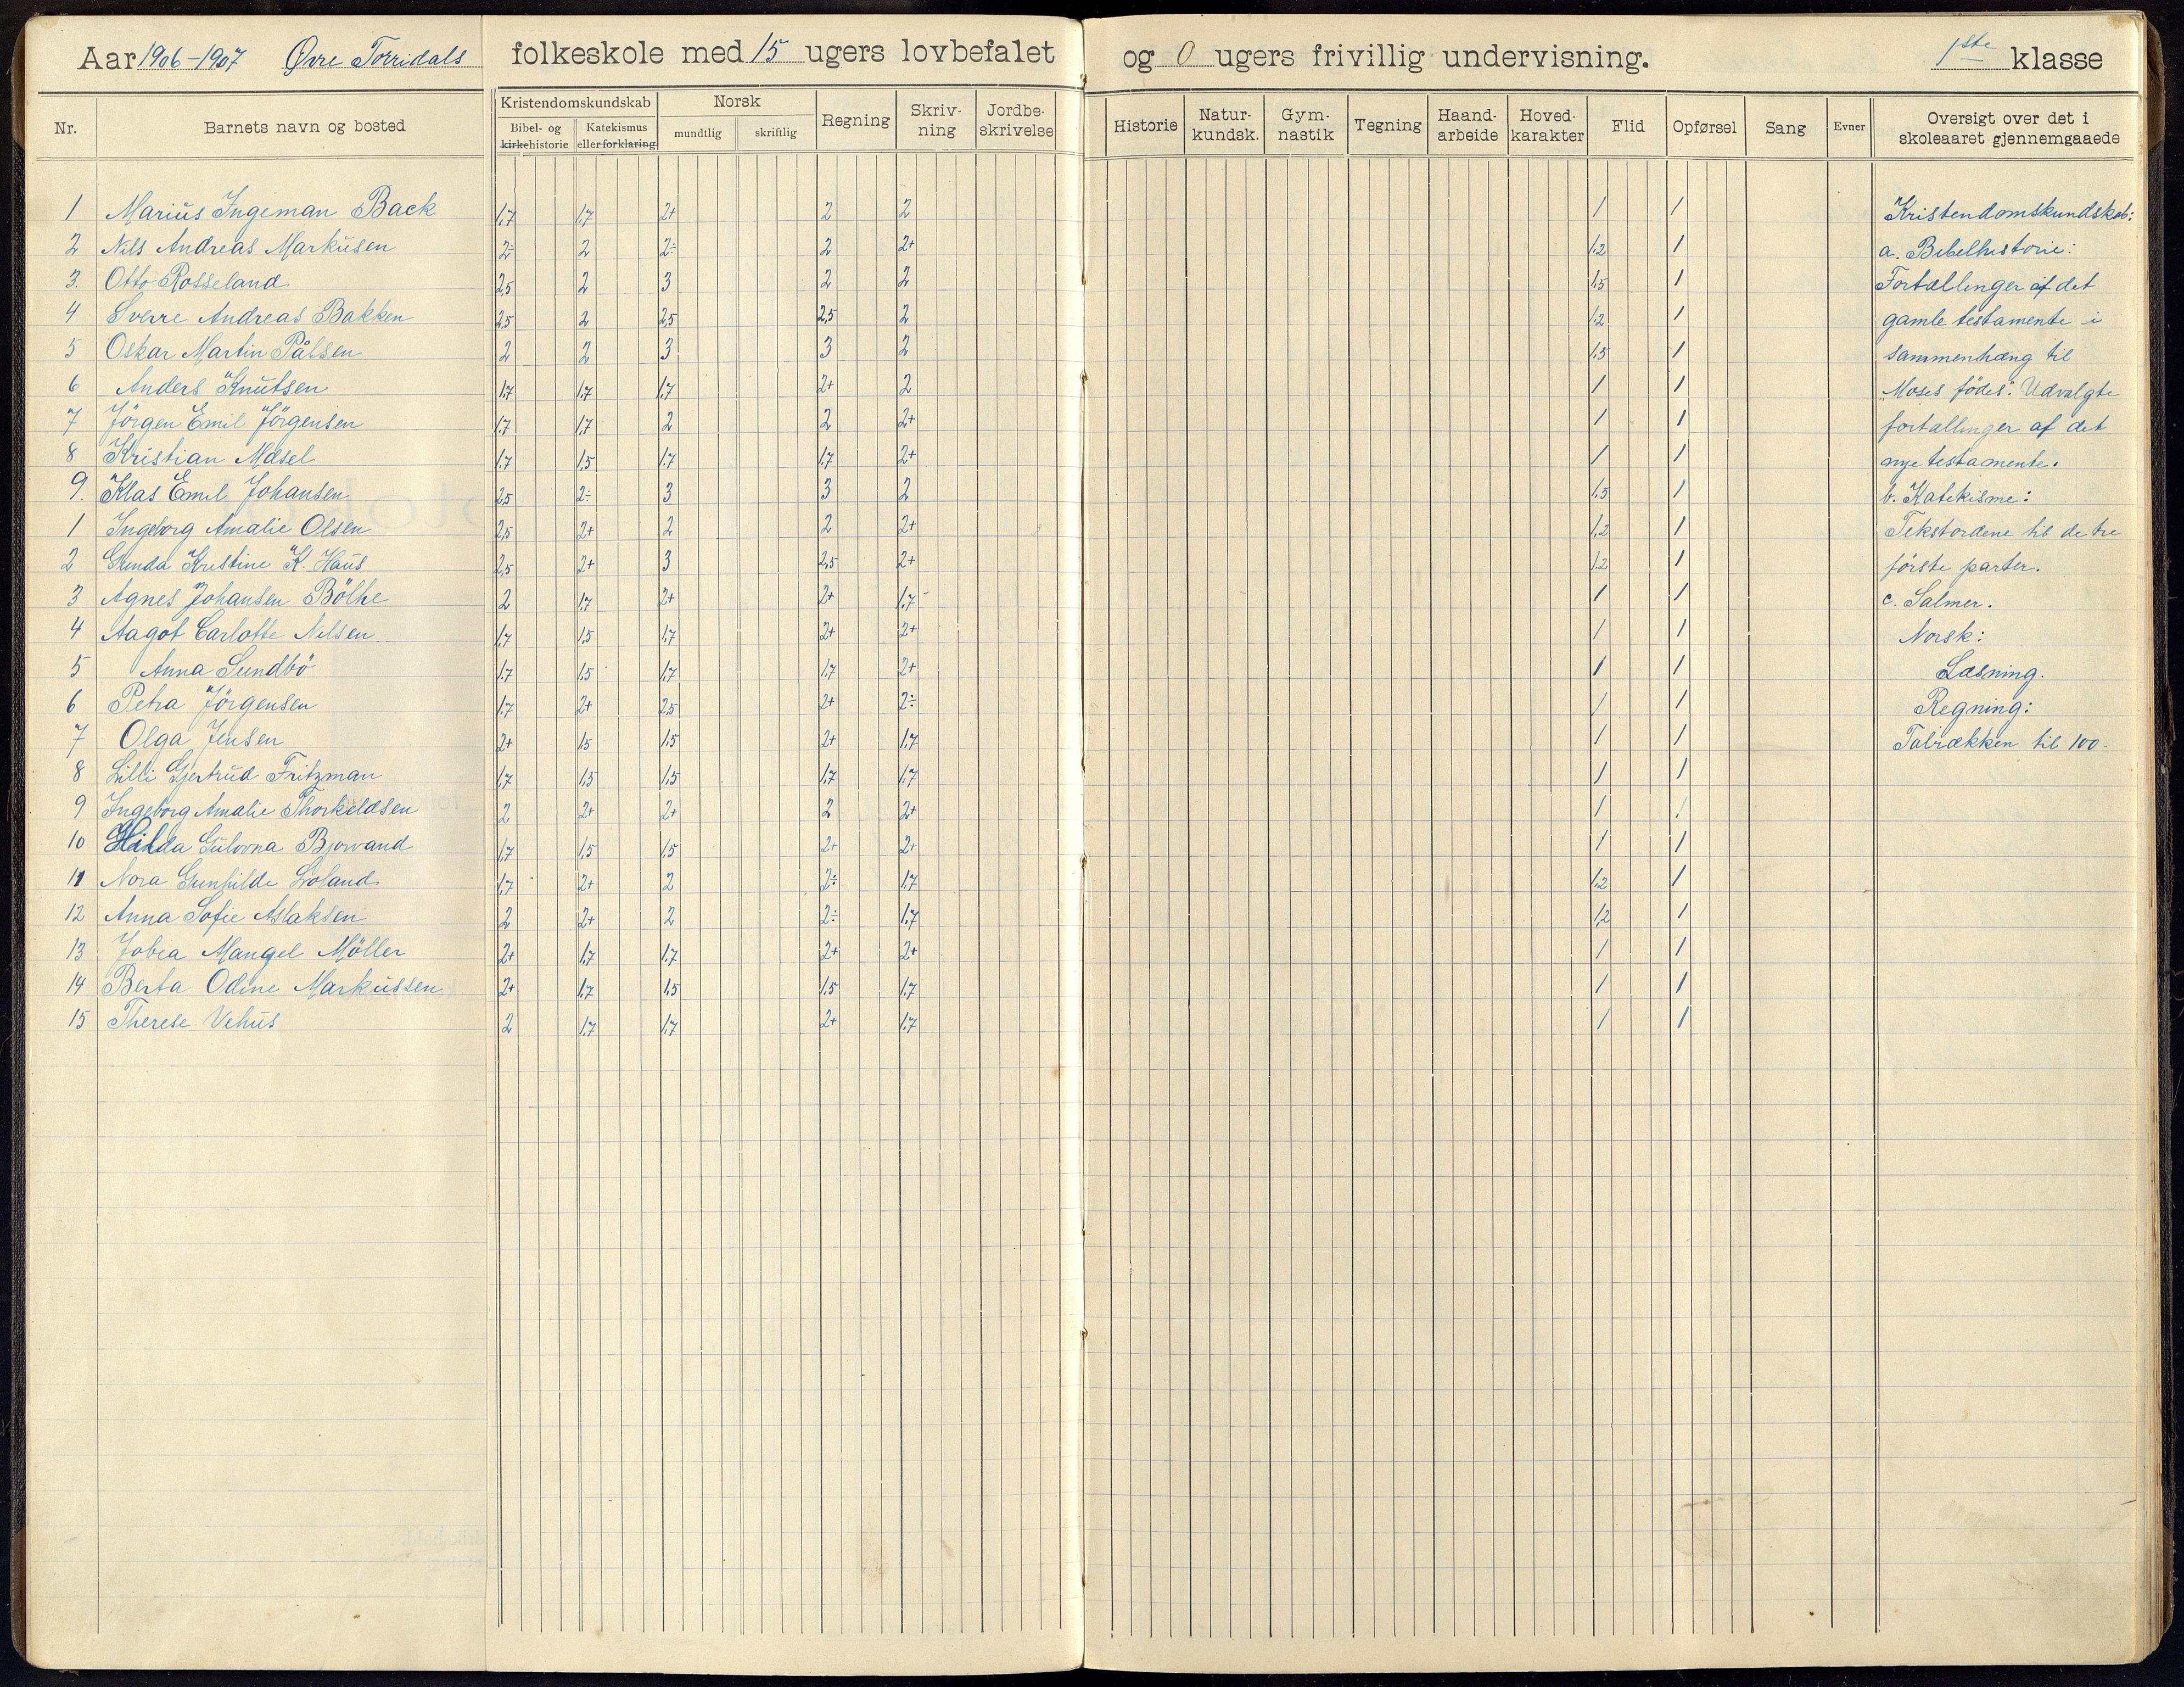 Aar 1906-1907 Øvre Torridals folkeskole med 15 ugers lovbefalet og 0 ugers frivillig undervisning. 1ste klasse
Nr. Barnets navn og bosted Kristendomskundskab Bibel- og kirkehistorie Katekismus eller forklaring Norsk mundtlig skriftlig Regning Skriv-ning Jordbe-skrivelse Historie Natur-kundsk. Gym-nastik Tegning Haand-arbeide Hoved-karakter Flid Opførsel Sang Evner Oversigt over det i skoleaaret gjennemgaaede
1 Marius Ingeman Back 1,7 1,7 2+ 2 2 1 1 Kristendomskundskab:
2 Nils Andreas Markusen 2÷ 2 2÷ 2 2+ 1,2 1 a. Bibelhistorie:
3. Otto Rosseland 2,5 2 3 2 2 1,5 1 Fortællinger af det
4 Sverre Andreas Bakken 2,5 2 2,5 2,5 2 1,2 1 gamle testamente i
5 Oskar Martin Pålsen 2 2 3 3 2 1,5 1 sammenhæng til
6 Anders Knutsen 1,7 1,7 1,7 2+ 2 1 1 "Moses födes". Udvalgte
7 Jörgen Emil Jörgensen 1,7 1,7 2 2 2+ 1 1 fortællinger af det
8 Kristian Mæsel 1,7 1,5 1,7 1,7 2+ 1 1 nye testamente.
9. Klas Emil Johansen 2,5 2÷ 3 3 2 1,5 1 b. Katekisme:
1 Ingeborg Amalie Olsen 2,5 2+ 2 2 2+ 1,2 1 Tekstordene til de tre
2 Gunda Kristine K. Haus 2,5 2+ 3 2,5 2+ 1,2 1 förste parter.
3 Agnes Johansen Bölhe 2 1,7 2+ 2+ 1,7 1 1 c. Salmer.
4 Aagot Carlotte Nilsen 1,7 1,5 1,7 2+ 2+ 1 1 Norsk:
5 Anna Sundbö 1,7 1,5 1,7 1,7 2+ 1 1 Læsning.
6 Petra Jörgensen 1,7 2+ 2,5 2+ 2÷ 1 1 Regning:
7 Olga Jensen 2+ 1,5 1,5 2+ 1,7 1 1 Talrækken til 100.
8 Lilli Gjertrud Fritzman 1,7 1,5 1,5 1,7 1,7 1 1
9 Ingeborg Amalie Thorkeldsen 2 2+ 2+ 2 2+ 1 1
10 Hilda Gulovna Bjorvand 1,7 1,5 1,5 2+ 2+ 1 1
11 Nora Gunhilde Loland 1,7 2+ 2 2÷ 1,7 1,2 1
12 Anna Sofie Aslaksen 2 2+ 2 2÷ 1,7 1,2 1
13 Mangel Möller 2+ 1,7 1,7 2+ 2+ 1 1
14 Berta Odine Markussen 2+ 1,7 1,5 1,5 1,7 1 1
15 Therese Vehus 2 1,7 1,7 2+ 1,7 1 1